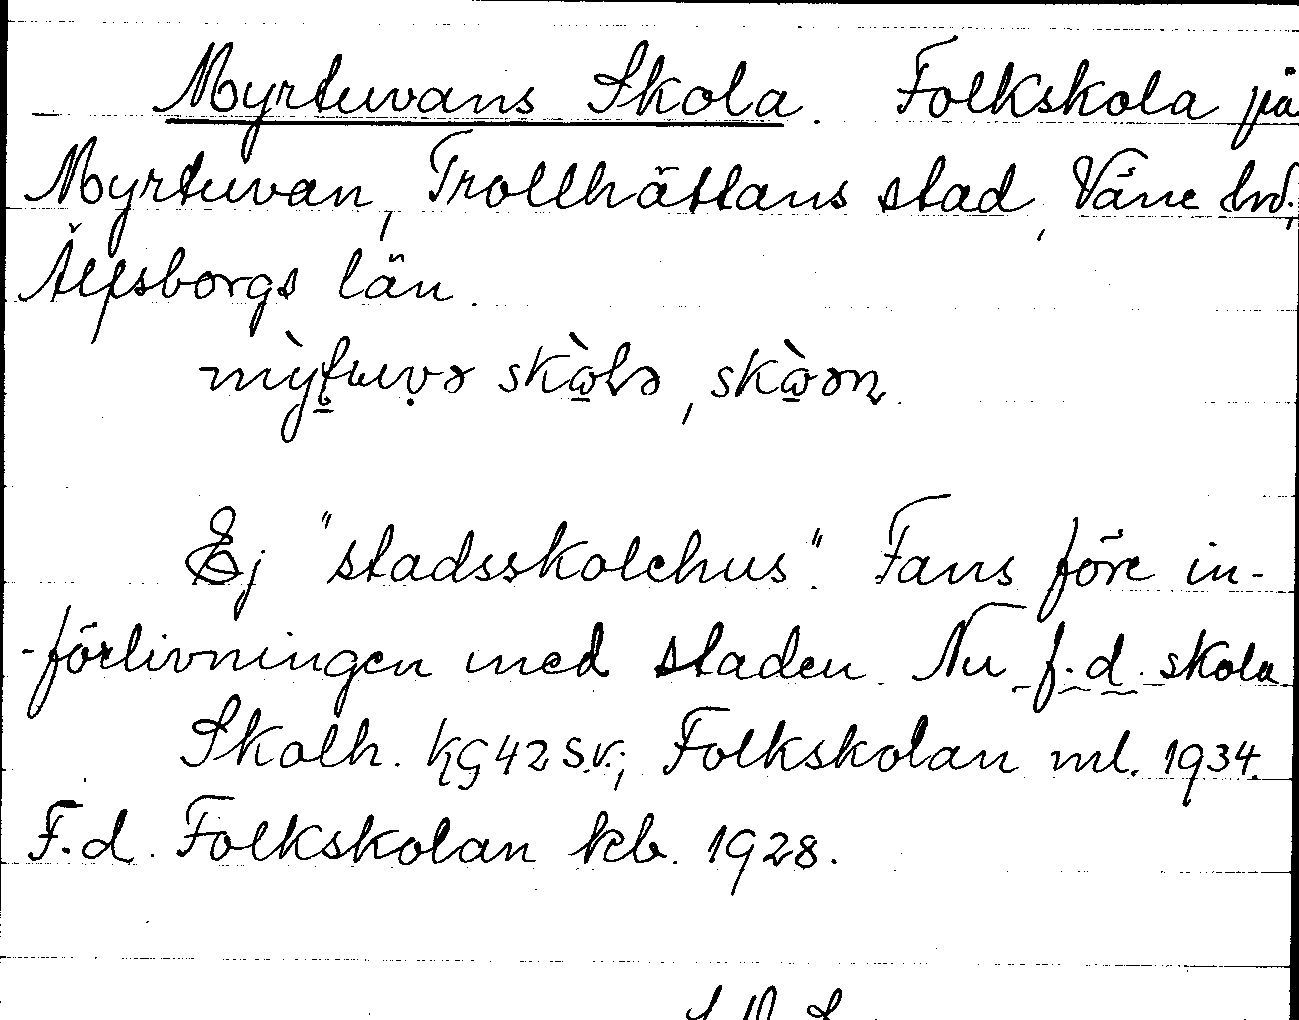 Myrtuvans Skola. Folkskola på
Myrtuvan, Trollhättans stad, Väne hd.,
Älfsborgs län.
skò̱lə, skò̱ən.
Ej "stadsskolehus". Fans före in-
-förlivningen med staden. Nu f.d. skola
Skolh. kg 42 s.v.; Folkskolan ml. 1934.
F.d. Folkskolan kb. 1928.